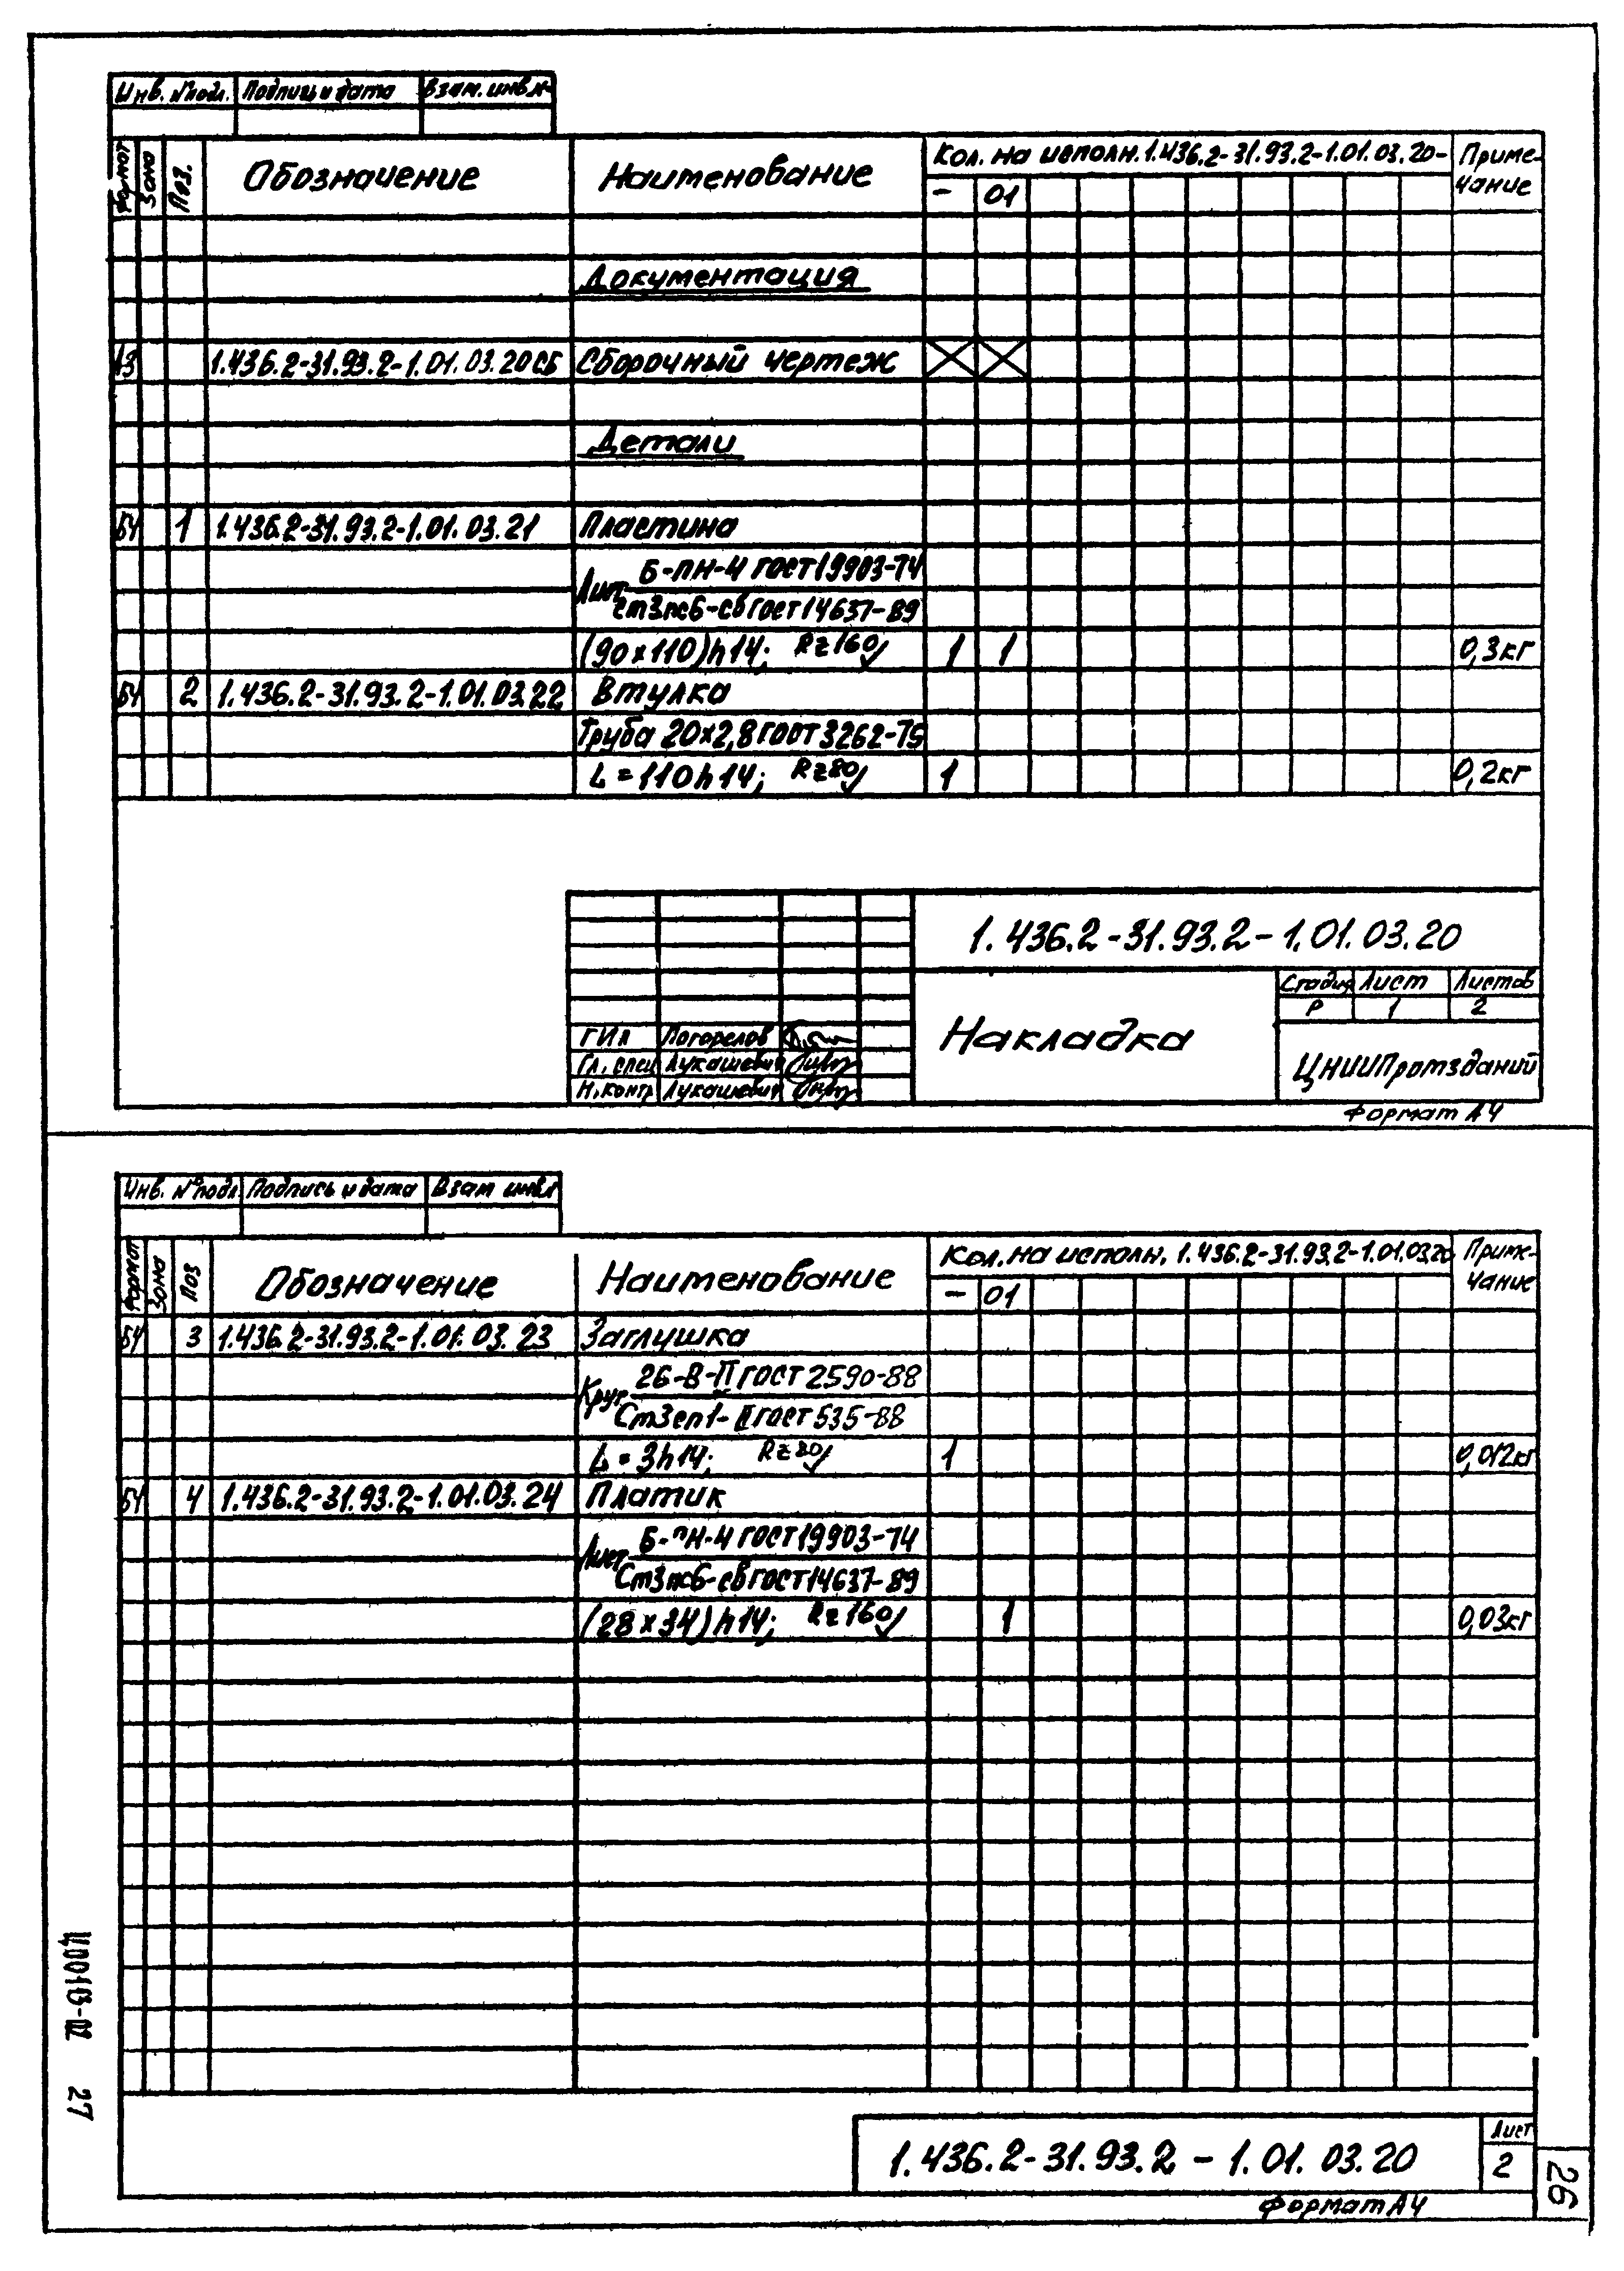 Инв. №подл. Подпись и дата Взам. инв.№
Формат Зона Поз. Обозначение Наименование Кол. на исполн. 1.436.2-31.93.2-1.01.03.20- Приме-
- 01 чание
Документация
А3 1.436.2-31.93.2-1.01.03.20СБ Сборочный чертеж
Детали
Б4 1 1.436.2-31.93.2-1.01.03.21 Пластина
Лист Б-ПН-4 ГОСТ 19903-74
Ст3пс6-св ГОСТ 14637-89
(90×110)h14; Rz160 1 1 0,3кг
Б4 2 1.436.2-31.93.2-1.01.03.22 Втулка
Труба 20×2,8 ГОСТ 3262-75
L=110h14; Rz80 1 0,2кг
1.436.2-31.93.2-1.01.03.20
Стадия Лист Листов
Р 1 2
Накладка
ГИП Погорелов
Гл. спец Лукашевич
Н.контр Лукашевич
ЦНИИПромзданий
Формат А4
Инв. №подл Подпись и дата Взам инв№
Формат Зона Поз Обозначение Наименование Кол. на исполн. 1.436.2-31.93.2-1.01.03.20 Приме-
- 01 чание
Б4 3 1.436.2-31.93.2-1.01.03.23 Заглушка
Круг 26-В-II ГОСТ 2590-88
Ст3сп1-II ГОСТ 535-88
L=3h14; Rz80 1 0,012кг
Б4 4 1.436.2-31.93.2-1.01.03.24 Платик
Лист Б-ПН-4 ГОСТ 19903-74
Ст3пс6-св ГОСТ 14637-89
(28×34)h14; Rz160 1 0,03кг
1.436.2-31.93.2-1.01.03.20 Лист
2
Формат А4
26
27